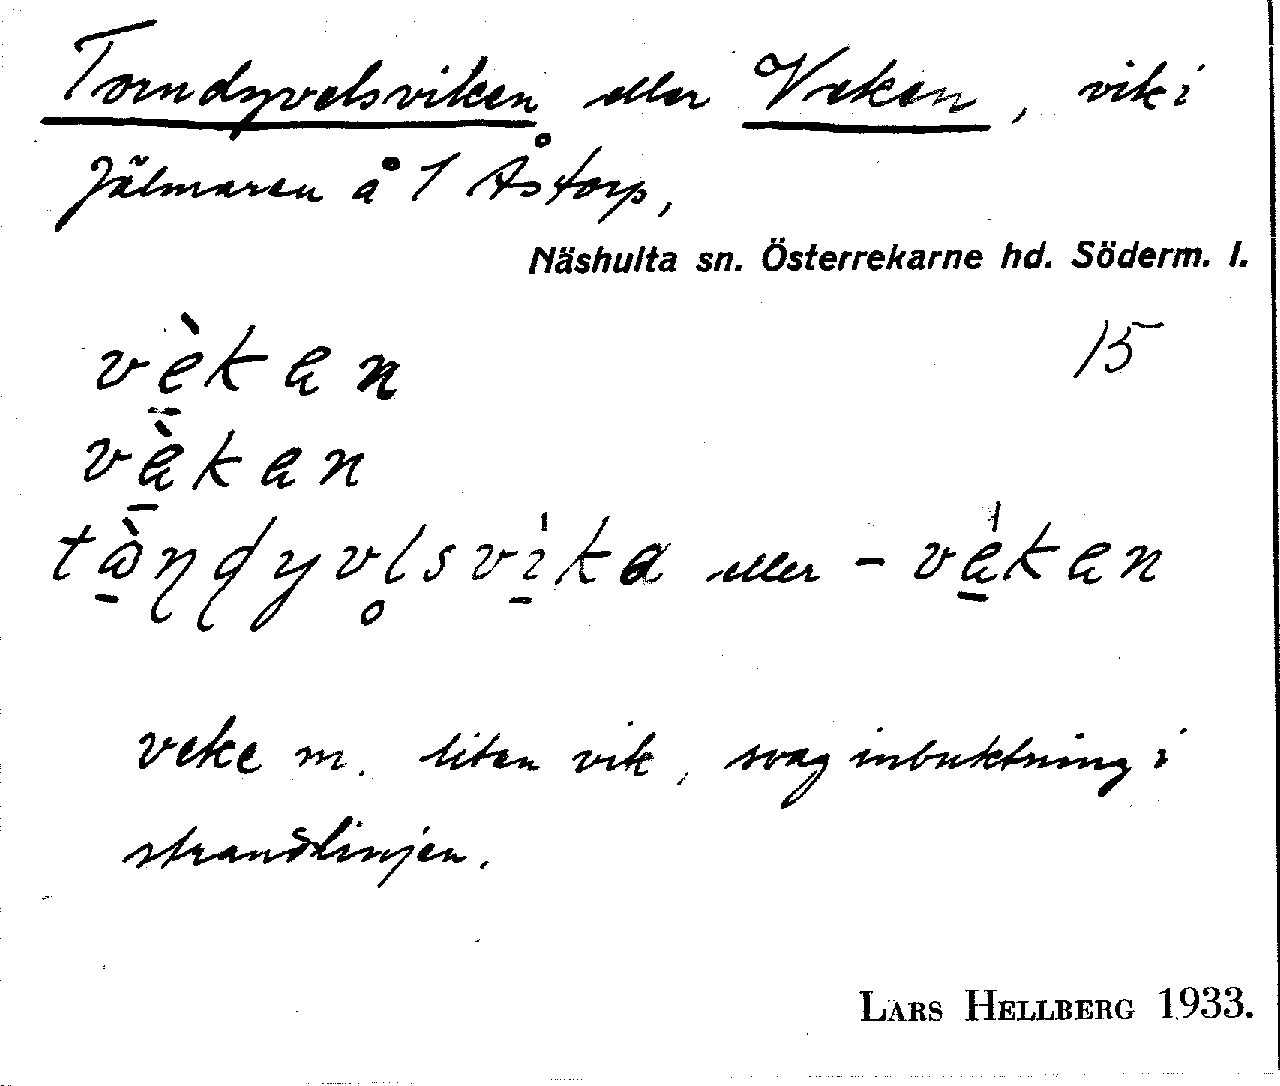 Torndyvelsviken eller Veken, vik i
Jälmaren å 1 Åstorp,
Näshulta sn. Österrekarne hd. Söderm. l.
15
vèkan
vèkan
eller
veke m. liten vik, svag inbuktning i
strandlinjen.
LARS HELLBERG 1933.